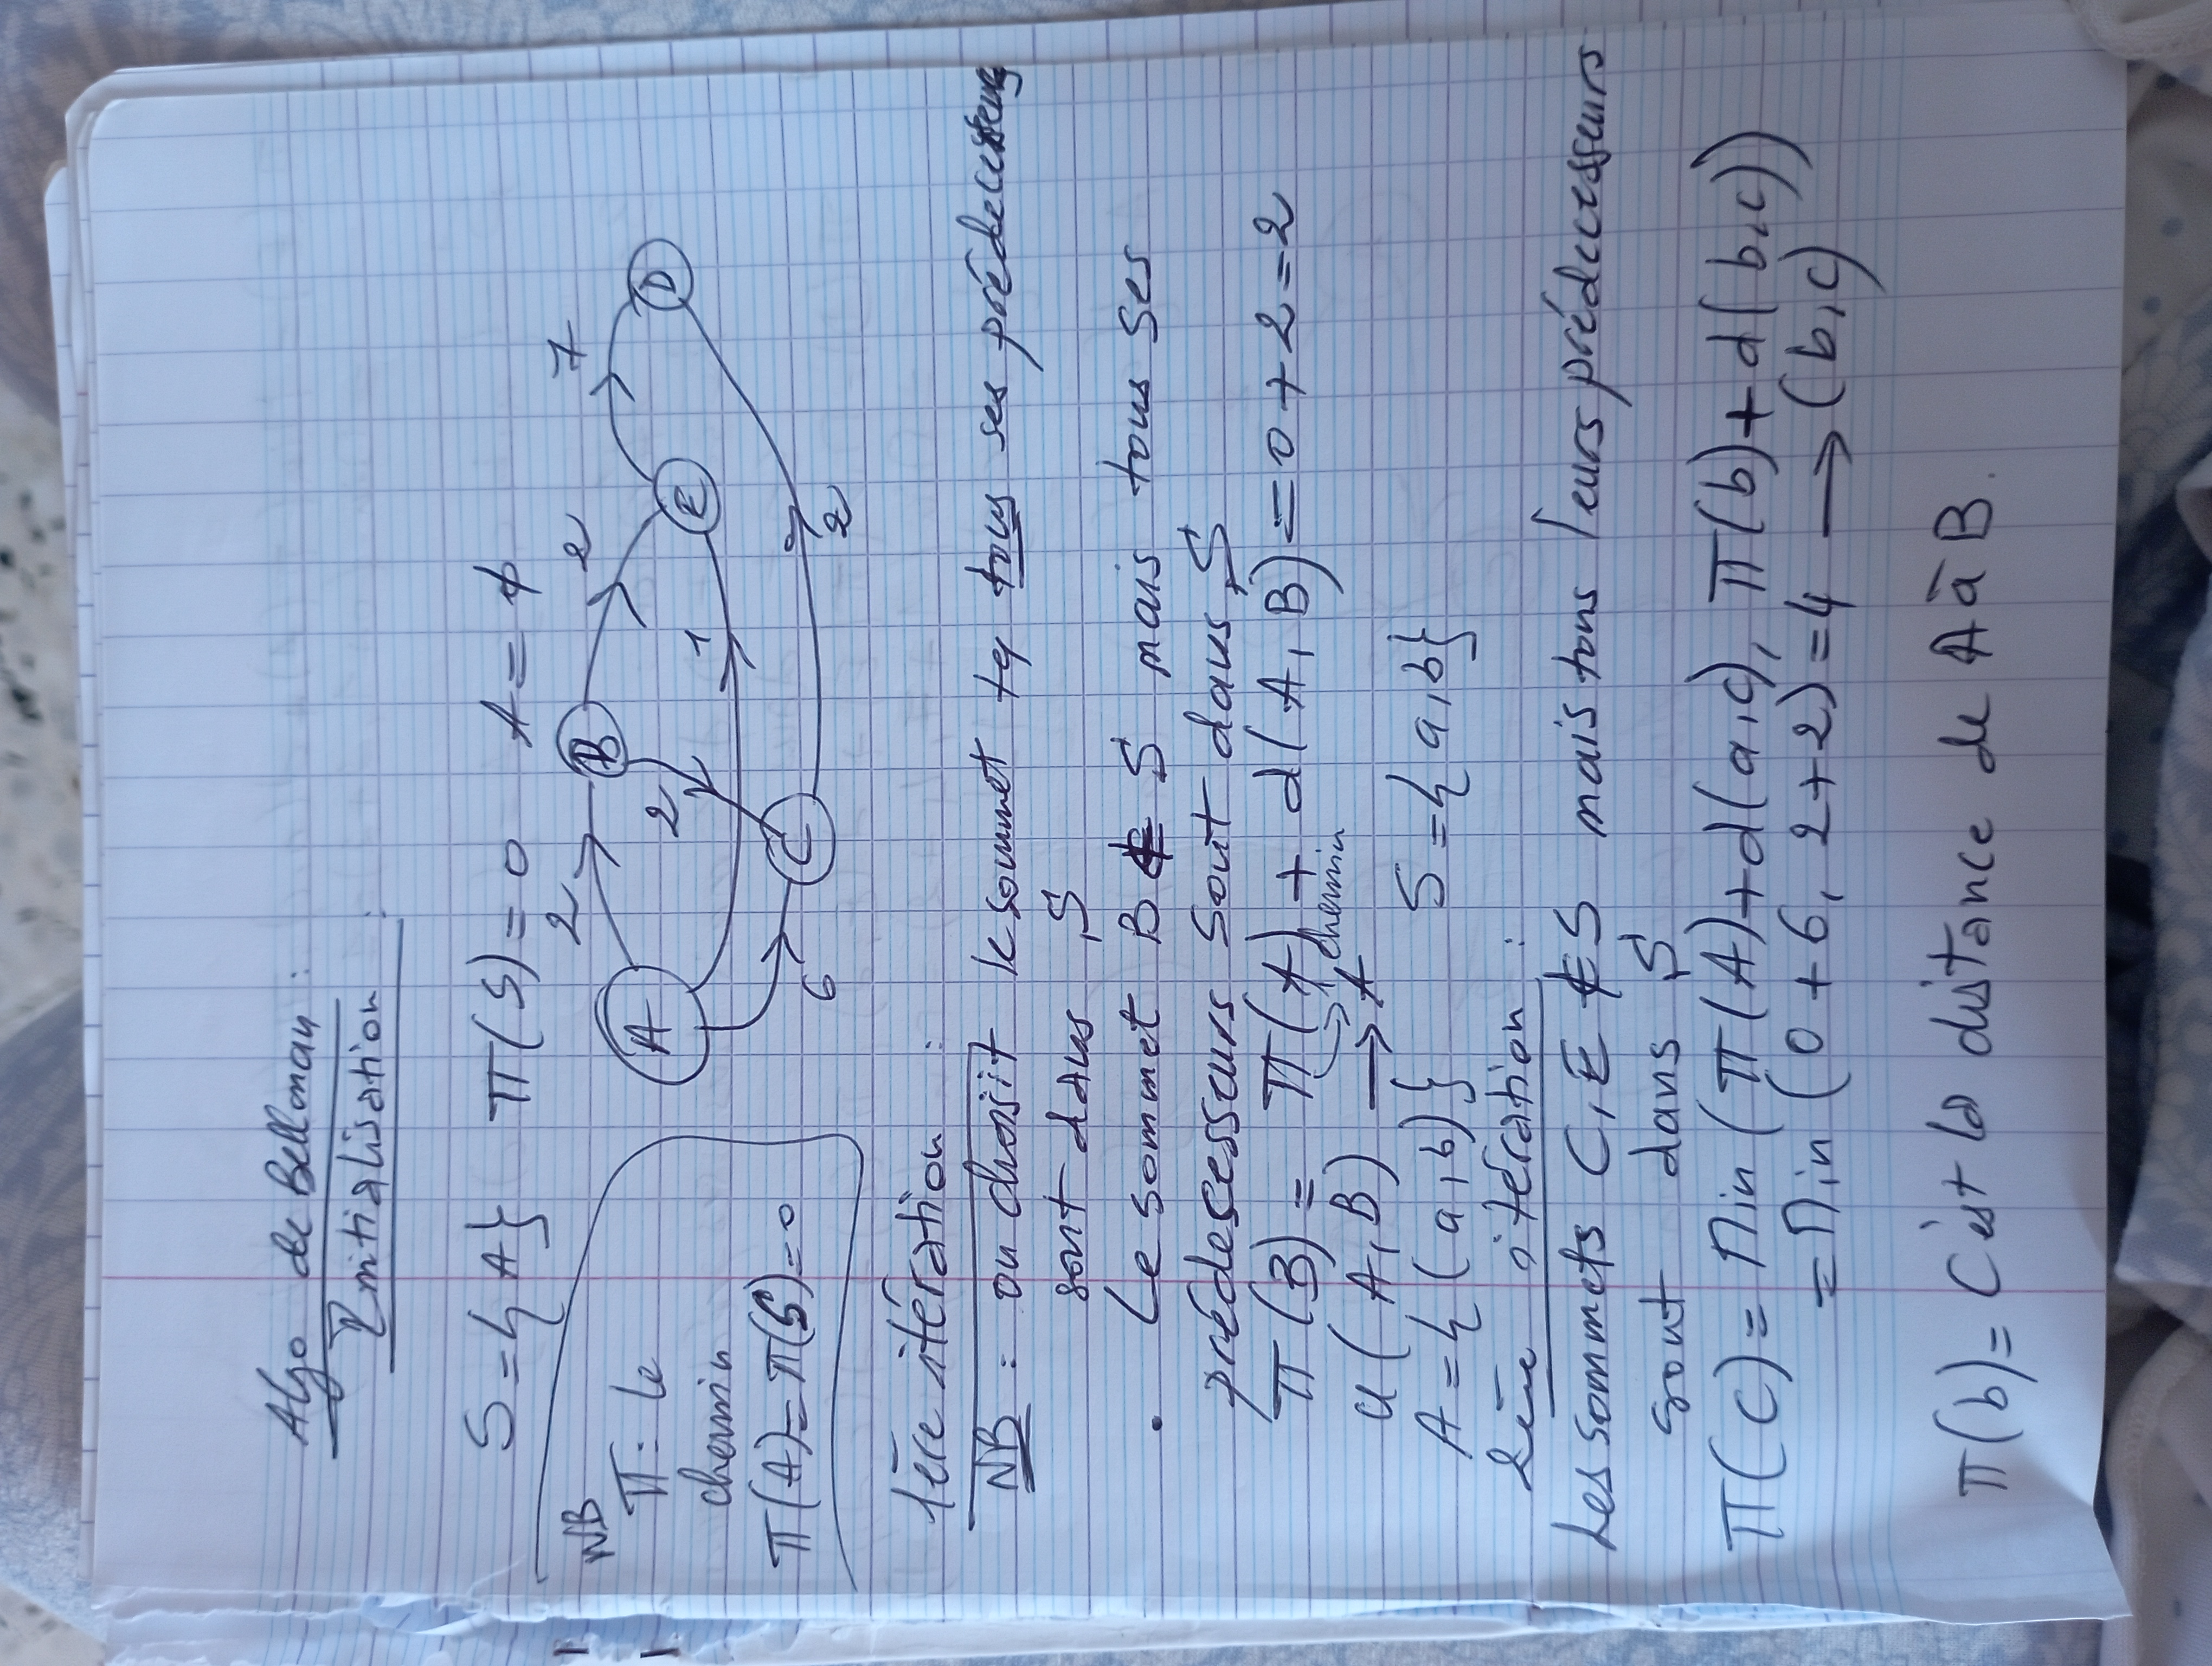 Algo de Bellman :
Initialisation :
S = { A }   π(S) = 0   A = ∅
NB
π : le
chemin
π(A) = π(S) = 0
A
B
C
E
D
2
6
2
1
2
7
2
1ère itération :
NB : on choisit le sommet tq tous ses prédécesseurs
sont dans S
• Le sommet B ∉ S mais tous ses
prédescesseurs sont dans S
π(B) = π(A) + d(A, B) = 0 + 2 = 2
chemin
u(A, B) → A
A = { (a, b) }   S = { a, b }
2ème itération :
Les sommets C, E ∉ S mais tous leurs prédecesseurs
sont dans S
π(C) = Min (π(A) + d(a,c), π(b) + d(b,c))
= Min (0 + 6, 2 + 2) = 4 → (b, c)
π(b) = C'est la distance de A à B.